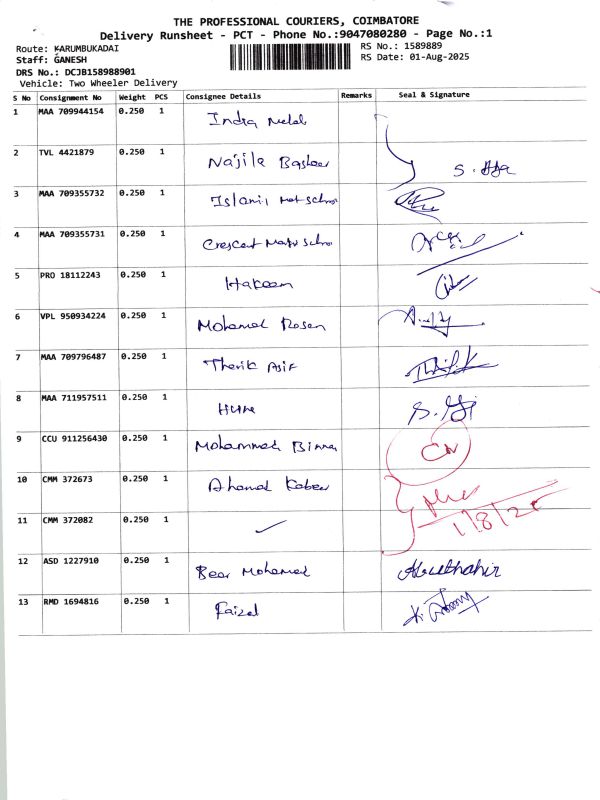 THE PROFESSIONAL COURIERS, COIMBATORE
Delivery Runsheet - PCT - Phone No.:9047080280 - Page No.:1
Route: KARUMBUKADAI RS No.: 1589889
Staff: GANESH RS Date: 01-Aug-2025
DRS No.: DCJB158988901
Vehicle: Two Wheeler Delivery
S No Consignment No Weight PCS Consignee Details Remarks Seal & Signature
1 MAA 709944154 0.250 1 Indra
2 TVL 4421879 0.250 1 Najila Basheer
3 MAA 709355732 0.250 1
4 MAA 709355731 0.250 1 Crescent
5 PRO 18112243 0.250 1 Hakeem
6 VPL 950934224 0.250 1 Mohamed
7 MAA 709796487 0.250 1 Asif
8 MAA 711957511 0.250 1
9 CCU 911256430 0.250 1 Mohammed
10 CMM 372673 0.250 1 Ahamed Kabeer
11 CMM 372082 0.250 1 ✓
1/8/25
12 ASD 1227910 0.250 1 Beer Mohamed Abuthahir
13 RMD 1694816 0.250 1 Faizal